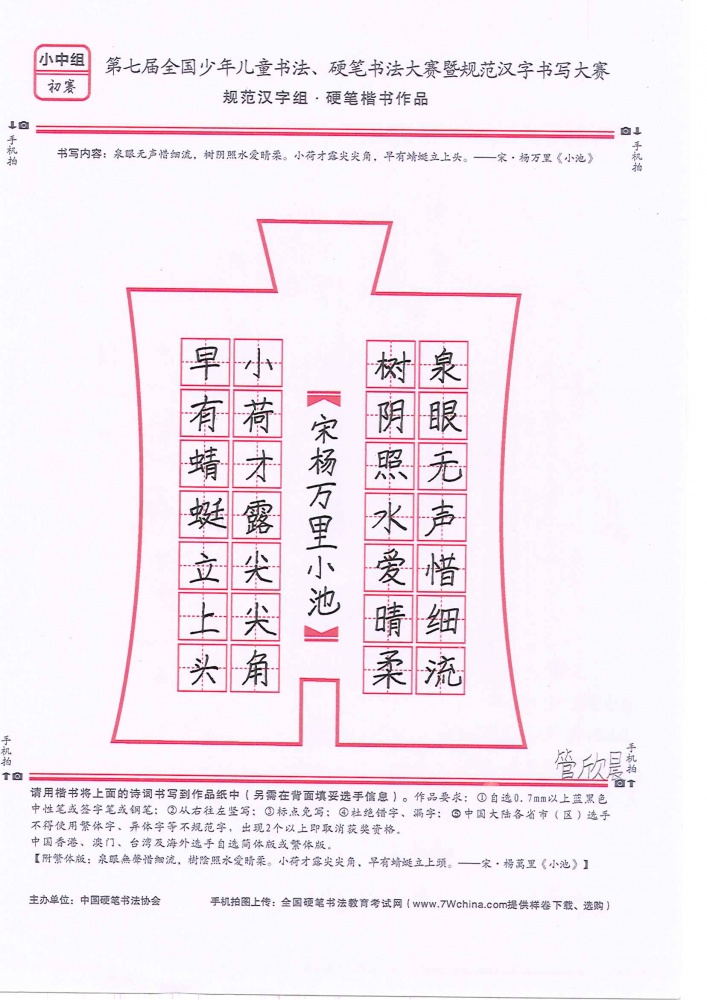 小中组
初赛
第七届全国少年儿童书法、硬笔书法大赛暨规范汉字书写大赛
规范汉字组·硬笔楷书作品
手机拍
手机拍
书写内容：泉眼无声惜细流，树阴照水爱晴柔。小荷才露尖尖角，早有蜻蜓立上头。——宋·杨万里《小池》
泉眼无声惜细流
树阴照水爱晴柔
宋杨万里小池
小荷才露尖尖角
早有蜻蜓立上头
管欣晨
手机拍
手机拍
请用楷书将上面的诗词书写到作品纸中（另需在背面填妥选手信息）。作品要求：①自选0.7mm以上蓝黑色
中性笔或签字笔或钢笔；②从右往左竖写；③标点免写；④杜绝错字、漏字；⑤中国大陆各省市（区）选手
不得使用繁体字、异体字等不规范字，出现2个以上即取消获奖资格。
中国香港、澳门、台湾及海外选手自选简体版或繁体版。
【附繁体版：泉眼無聲惜细流，樹陰照水爱晴柔。小荷才露尖尖角，早有蜻蜓立上頭。——宋·楊萬里《小池》】
主办单位：中国硬笔书法协会
手机拍图上传：全国硬笔书法教育考试网（www.7Wchina.com提供样卷下载、选购）